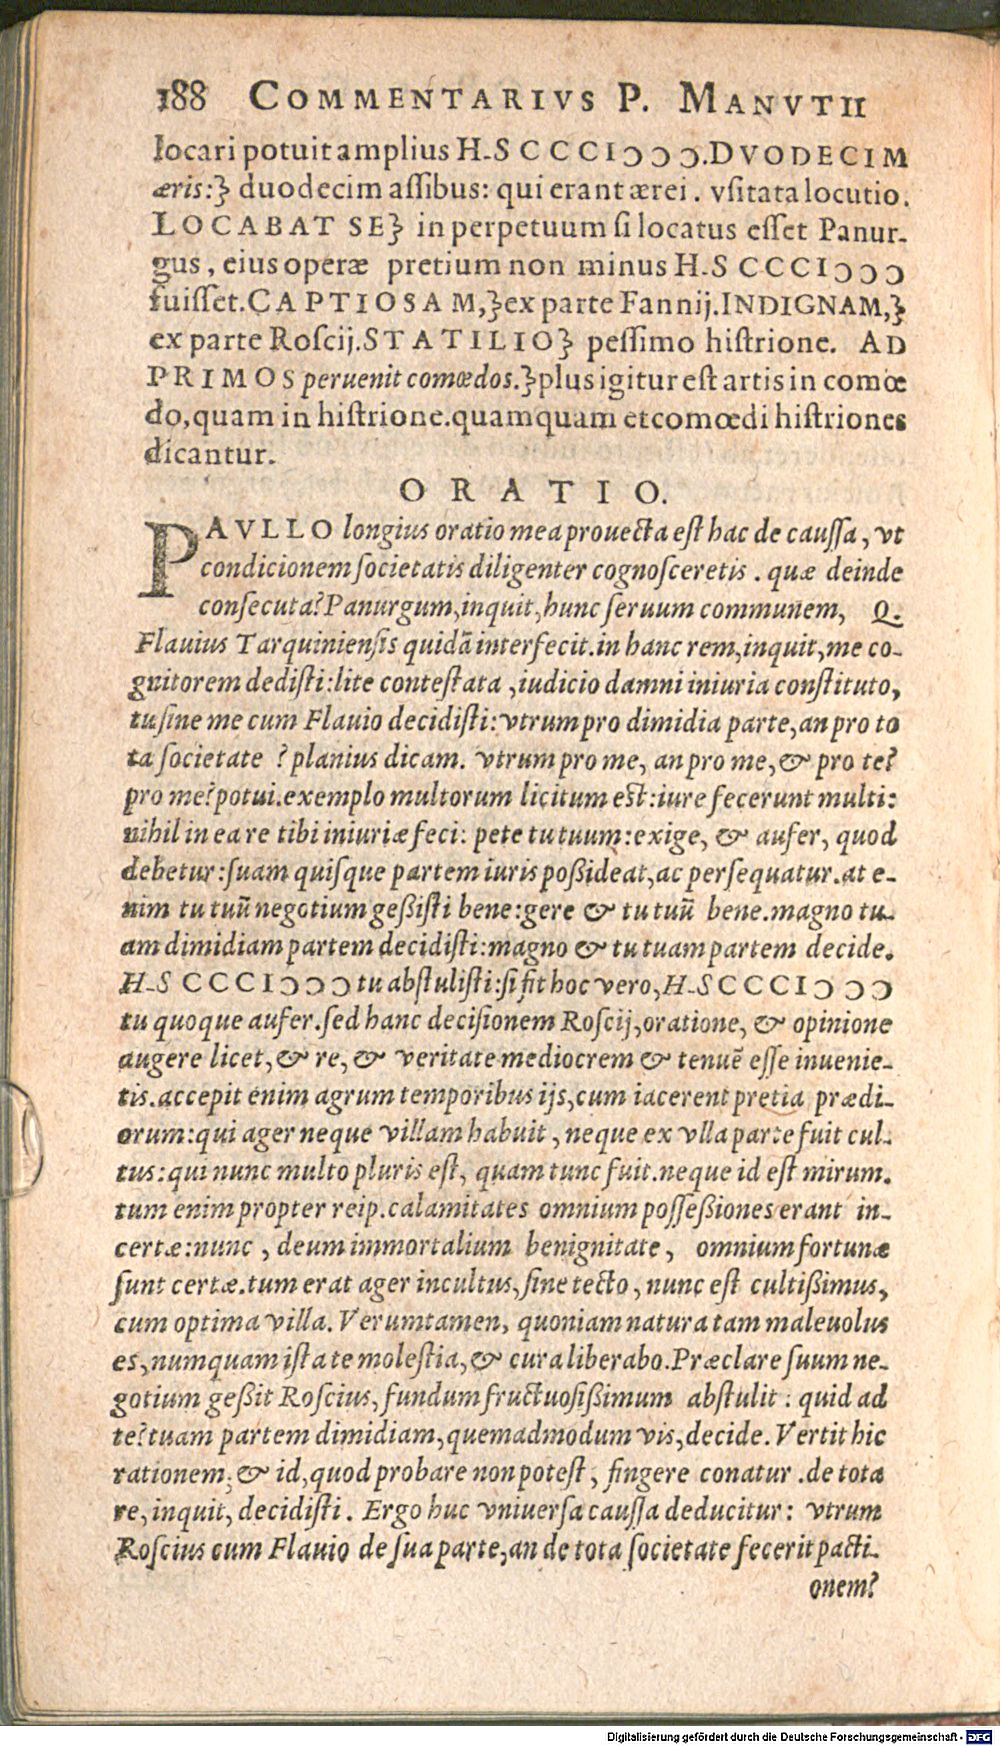 188 COMMENTARIVS P. MANVTII
locari potuit amplius H-S CCCIↃↃↃ. DVODECIM
æris:} duodecim aſſibus: qui erant ærei. vſitata locutio.
LOCABAT SE} in perpetuum ſi locatus eſſet Panur-
gus, eius operæ pretium non minus H-S CCCIↃↃↃ
fuiſſet. CAPTIOSAM,} ex parte Fannij. INDIGNAM,}
ex parte Roſcij. STATILIO} peſſimo hiſtrione. AD
PRIMOS peruenit comœdos.} plus igitur eſt artis in comœ
do, quam in hiſtrione. quamquam et comœdi hiſtriones
dicantur.
ORATIO.
PAVLLO longius oratio mea prouecta eſt hac de cauſſa, vt
condicionem ſocietatis diligenter cognoſceretis. quæ deinde
conſecuta? Panurgum, inquit, hunc ſeruum communem, Q.
Flauius Tarquinienſis quidā interfecit. in hanc rem, inquit, me co-
gnitorem dediſti: lite conteſtata, iudicio damni iniuria conſtituto,
tu ſine me cum Flauio decidiſti: vtrum pro dimidia parte, an pro to
ta ſocietate? planius dicam. vtrum pro me, an pro me, & pro te?
pro me? potui. exemplo multorum licitum est: iure fecerunt multi:
nihil in ea re tibi iniuriæ feci: pete tu tuum: exige, & aufer, quod
debetur: ſuam quiſque partem iuris poßideat, ac perſequatur. at e-
nim tu tuū negotium geßiſti bene: gere & tu tuū bene. magno tu-
am dimidiam partem decidiſti: magno & tu tuam partem decide.
H-S CCCIↃↃↃ tu abſtuliſti: ſi fit hoc vero, H-S CCCIↃↃↃ
tu quoque aufer. ſed hanc deciſionem Roſcij, oratione, & opinione
augere licet, & re, & veritate mediocrem & tenuē eſſe inuenie-
tis. accepit enim agrum temporibus ijs, cum iacerent pretia prædi-
orum: qui ager neque villam habuit, neque ex vlla parte fuit cul-
tus: qui nunc multo pluris eſt, quam tunc fuit. neque id eſt mirum.
tum enim propter reip. calamitates omnium poſſeßiones erant in-
certæ: nunc, deum immortalium benignitate, omnium fortunæ
ſunt certæ. tum erat ager incultus, ſine tecto, nunc eſt cultißimus,
cum optima villa. Verumtamen, quoniam natura tam maleuolus
es, numquam iſta te moleſtia, & cura liberabo. Præclare ſuum ne-
gotium geßit Roſcius, fundum fructuoſißimum abſtulit: quid ad
te? tuam partem dimidiam, quemadmodum vis, decide. Vertit hic
rationem; & id, quod probare non poteſt, fingere conatur. de tota
re, inquit, decidiſti. Ergo huc vniuerſa cauſſa deducitur: vtrum
Roſcius cum Flauio de ſua parte, an de tota ſocietate fecerit pacti-
onem?
Digitalisierung gefördert durch die Deutsche Forschungsgemeinschaft - DFG